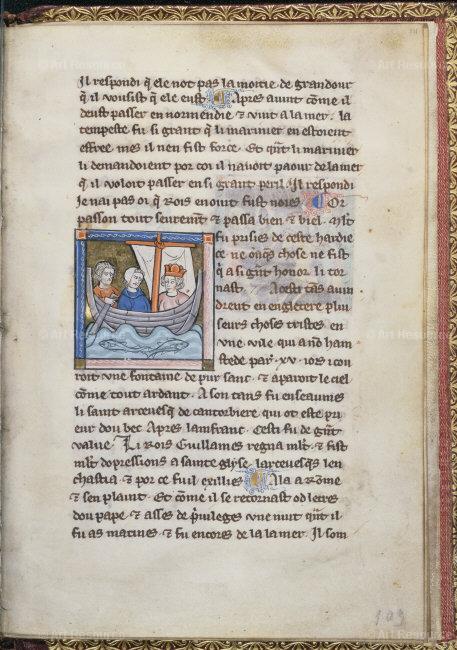 Il respondi q̃ ele not pas la moitie de grandour
q̃ il vousist q̃ ele eust Apres auint cõme il
deust passer en normendie ⁊ vint a la mer. la
tempeste fu si grant q̃ li marinier en estoient
effree. mes il nen fist force. Et q̃nt li marinier
li demandoient por coi il nauoit paour de la mer
q̃ il voloit passer en si grant peril. Il respondi
Je nai pas oi q̃ Rois en oiunt fust noies. Or
passon tout seurement ⁊ passa bien ⁊ biel.
fu prisies de ceste hardie
ce ne onqs chose ne fist
q̃ a si g̃nt honor li tor
nast. A cesti tãs auin
drent en engletere plui
seurs choses tristes. en
vne vile qui a nõ ham
stede par .xv. iors i cou
roit vne fontaine de pur sanc. ⁊ aparoit le ciel
cõme tout ardant. A son tans fu enseaumes
li saint arceuesq̃ de cantorbiere qui ot este pri
eur dou bec Apres lamfranc. Cesti fu de g̃nt
value. Li Rois Guillames regna ml̃t ⁊ fist
ml̃t dopressions a sainte glyse larceuesqs len
chastia. ⁊ por ce fu il exillies Ala a Rõme
⁊ sen plaint. Et cõme il se retornast od letres
dou pape. ⁊ asses de p̃uileges vne nuit q̃nt il
fu as matines ⁊ fu encores de la la mer. Il som
109
© Art Resource